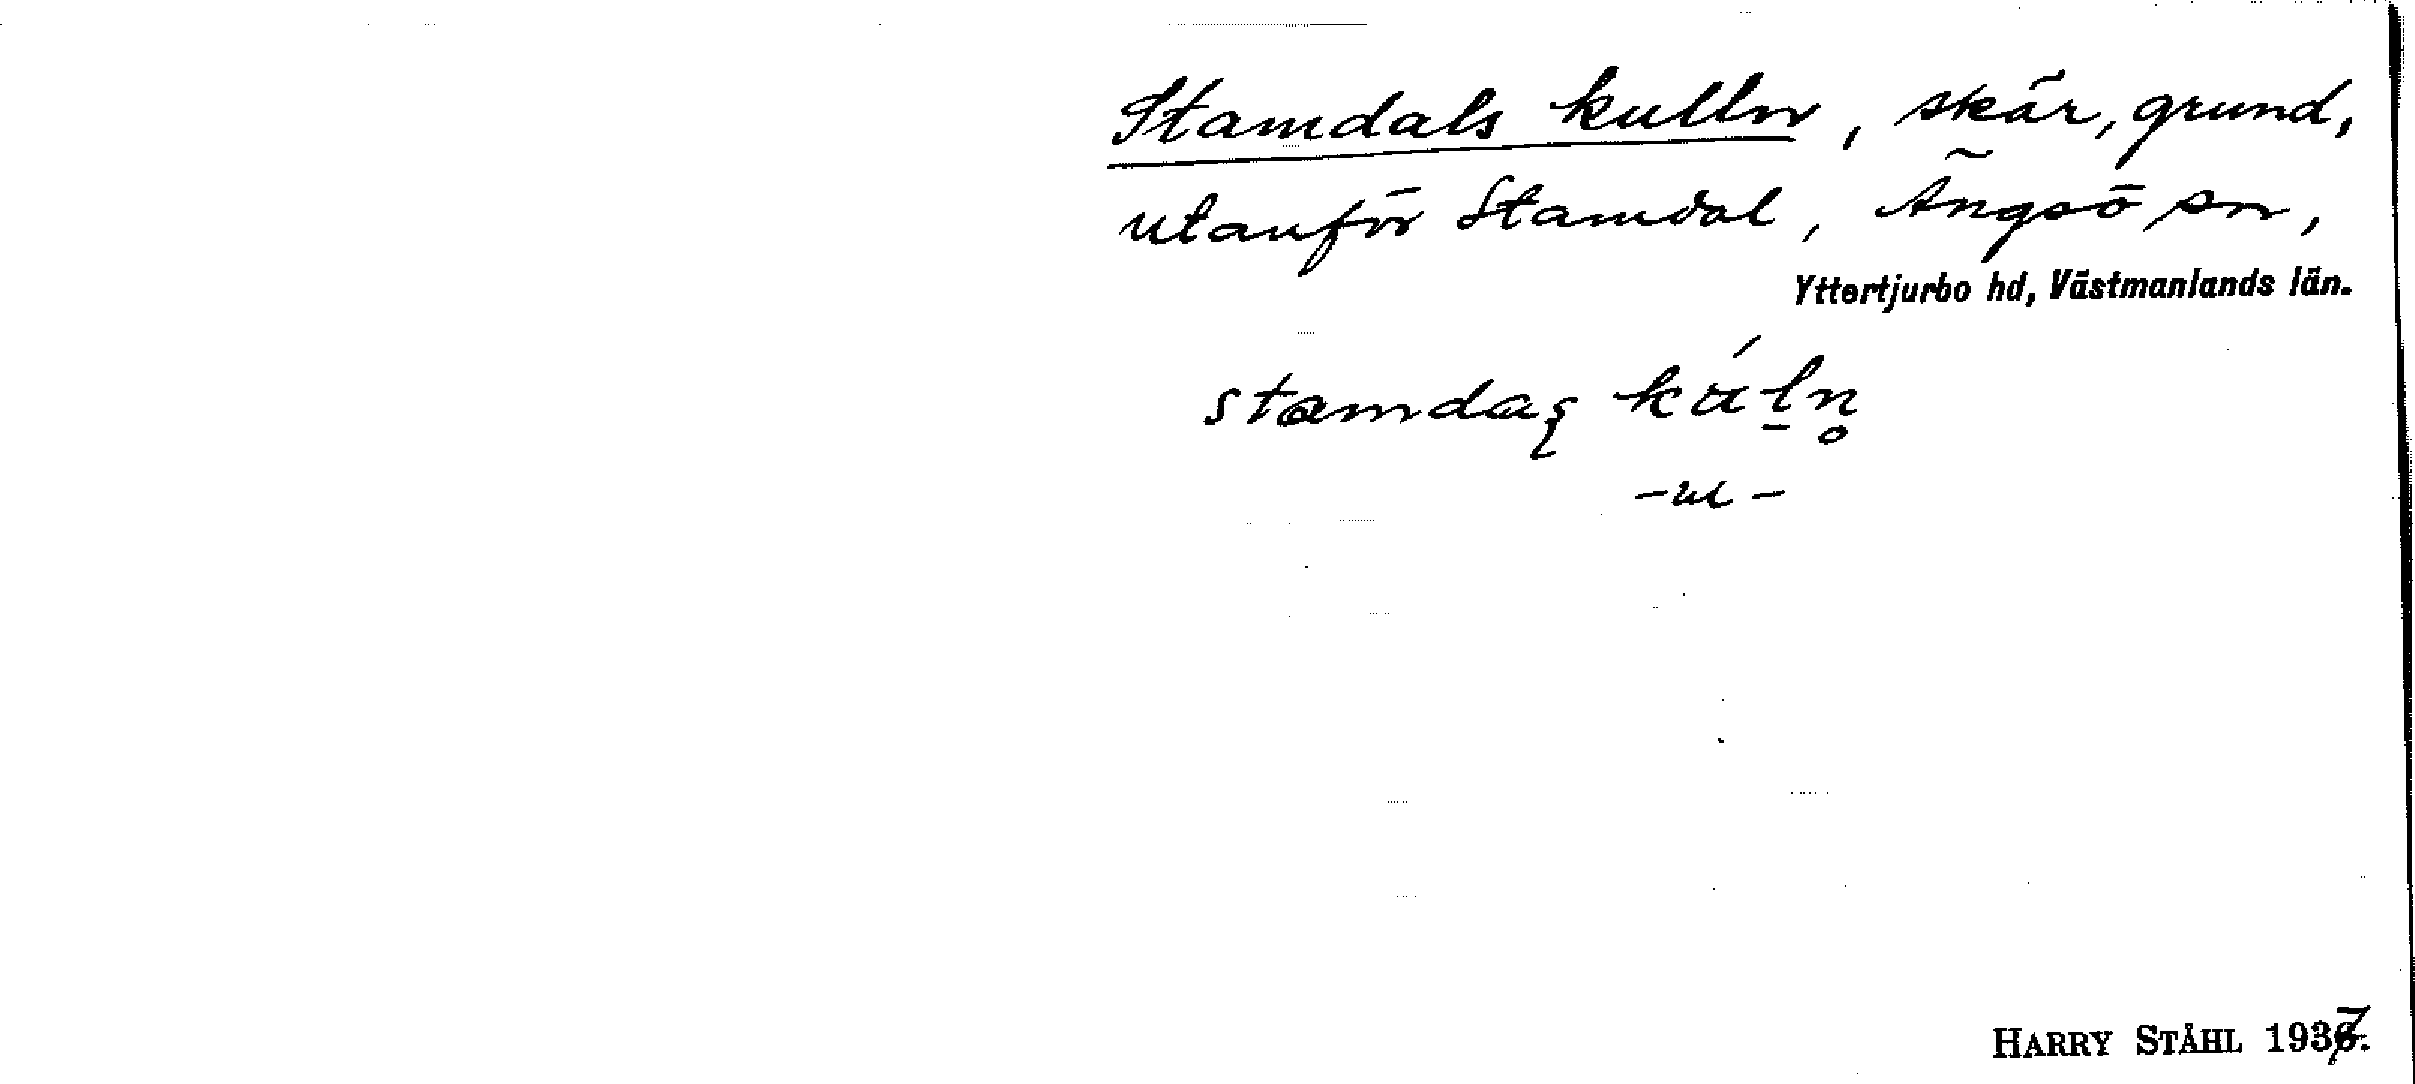 Stamdals kulln, skär, grund,
utanför Stamdal, Ängsö sn,
Yttertjurbo hd, Västmanlands län.
kúl̠n̥
-ɯ-
HARRY STÅHL 1937.